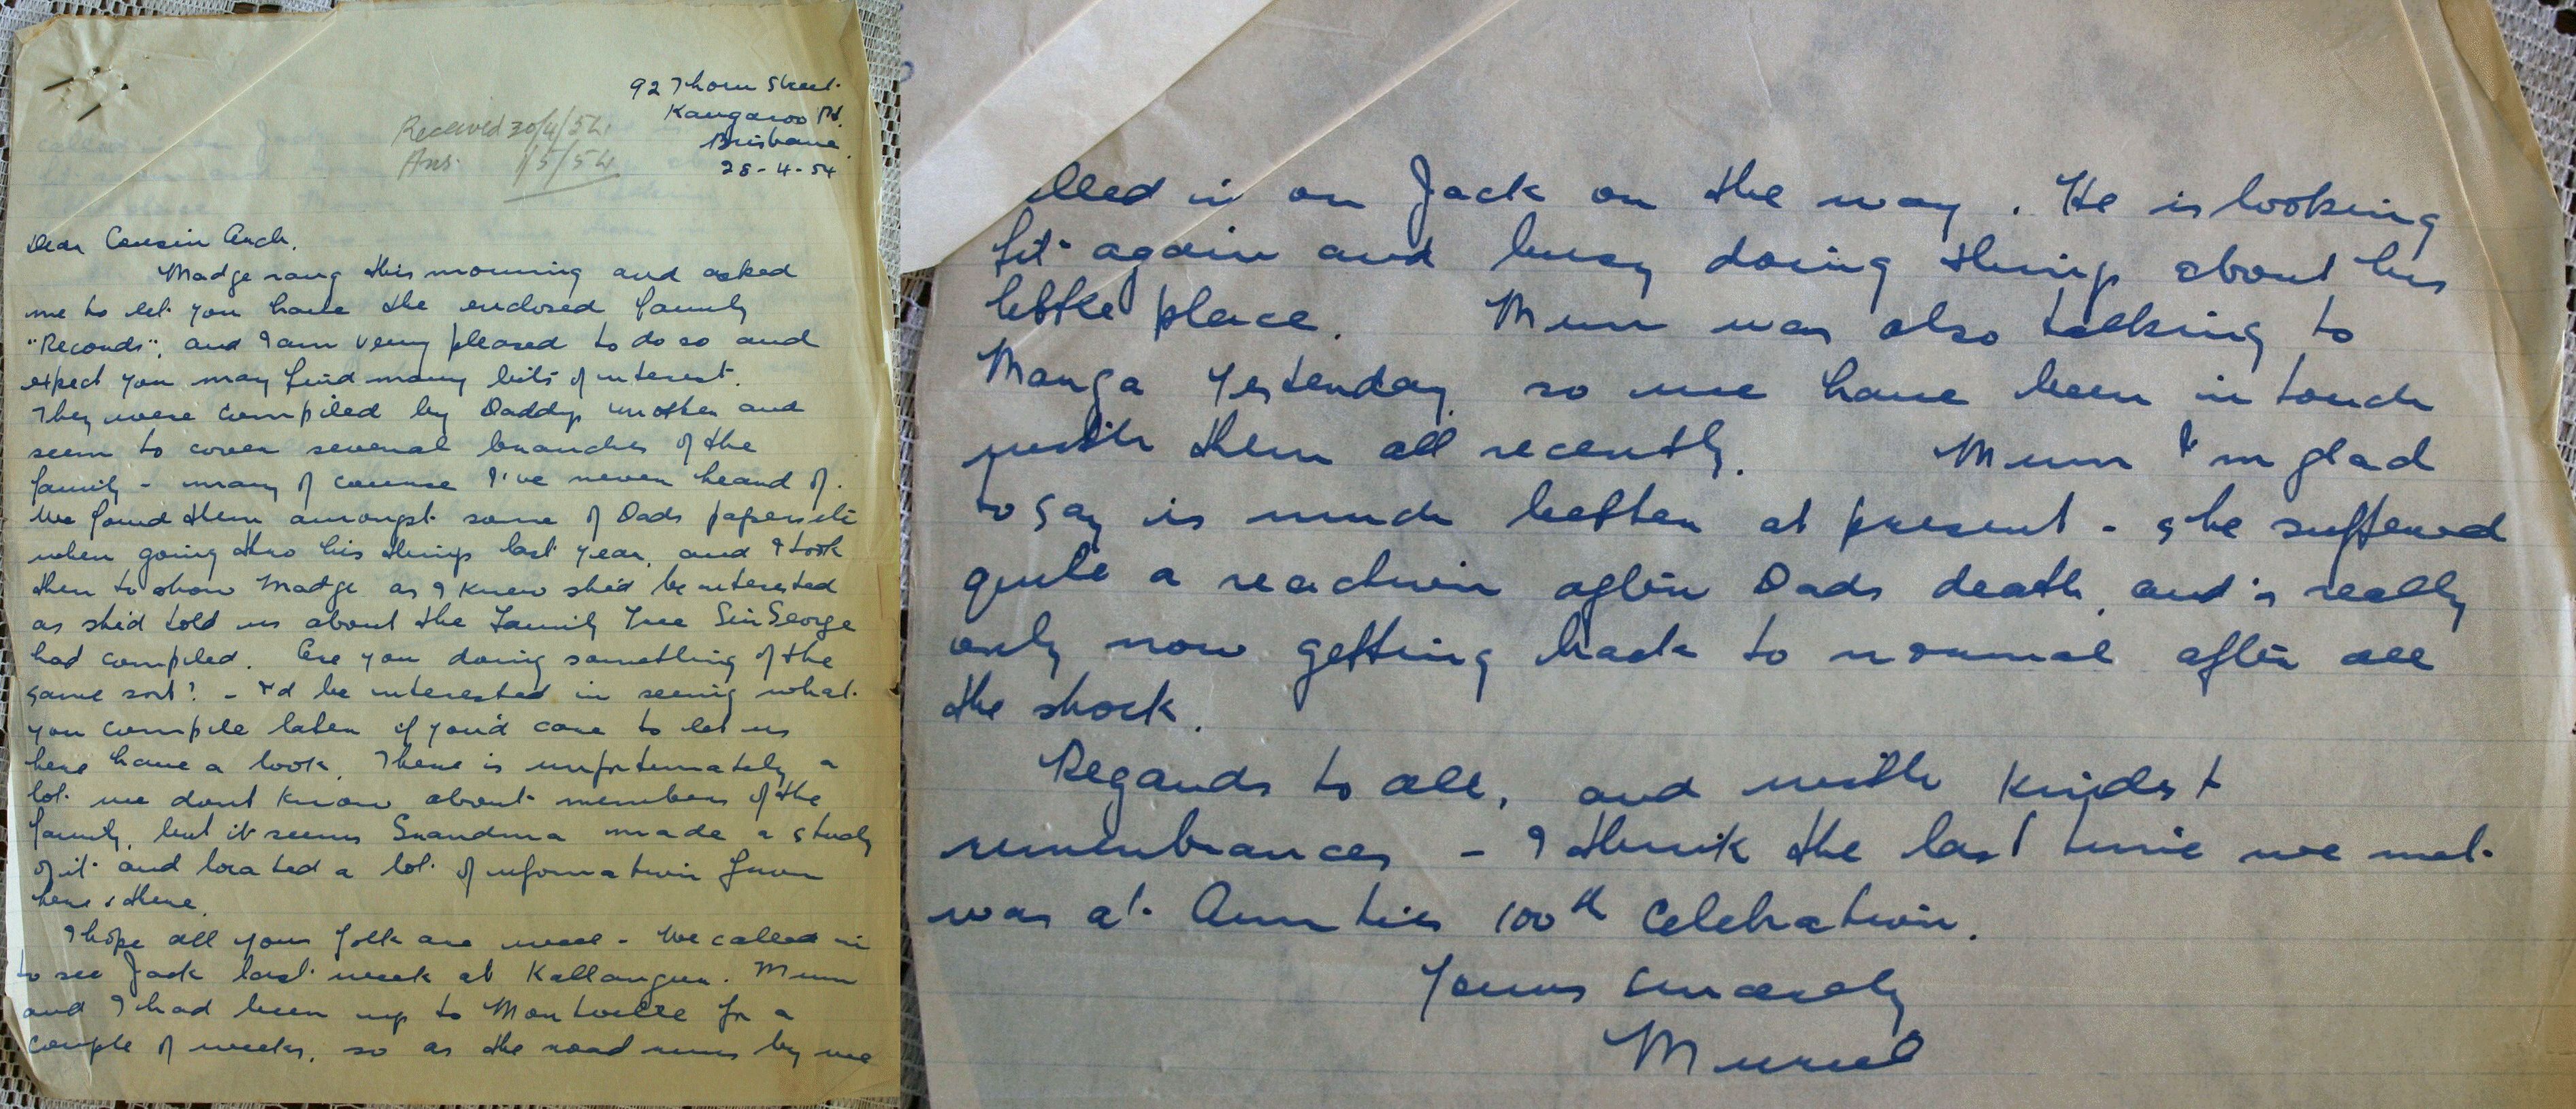 92 Thorn Street.
Kangaroo Pt.
Brisbane.
28-4-54
Received 30/4/54
Ans. 1/5/54
Dear Cousin Arch,
Madge rang this morning and asked
me to let you have the enclosed family
"Records", and I am very pleased to do so and
expect you may find many bits of interest.
They were compiled by Daddys mother and
seem to cover several branches of the
family - many of course I've never heard of.
We found them amongst some of Dads papers etc
when going thro his things last year, and I took
them to show Madge as I knew she'd be interested
as she'd told us about the Family Tree Sir George
had compiled. Are you doing something of the
same sort? - I'd be interested in seeing what
you compile later if you'd care to let us
here have a look. There is unfortunately a
lot we dont know about members of the
family, but it seems Grandma made a study
of it and located a lot of information from
here & there.
I hope all your folk are well - We called in
to see Jack last week at Kallangur. Mum
and I had been up to Montville for a
couple of weeks, so as the road runs by we
lled in on Jack on the way. He is looking
fit again and busy doing things about his
little place. Mum was also talking to
Manga yesterday so we have been in touch
with them all recently. Mum I'm glad
to say is much better at present - she suffered
quite a reaction after Dads death, and is really
only now getting back to normal after all
the shock.
Regards to all, and with kindest
remembrances - I think the last time we met
was at Aunties 100th Celebration.
Yours sincerely
Muriel